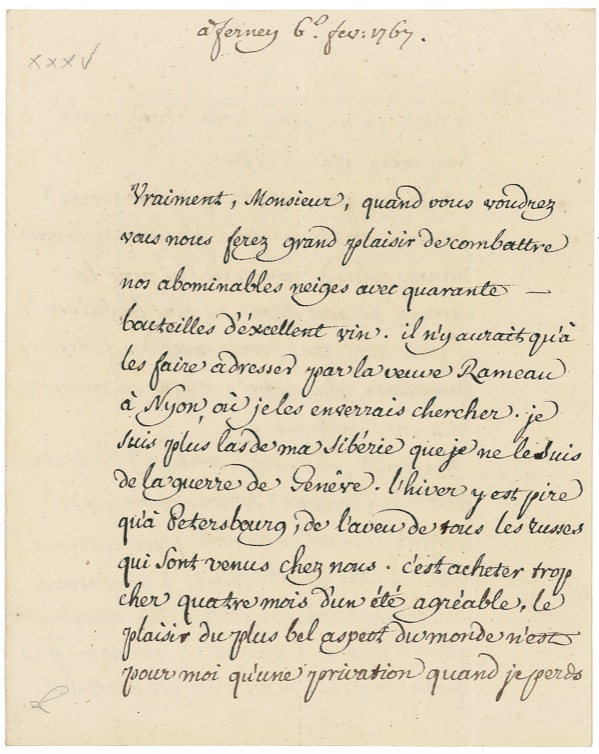 à ferney 6º. fev: 1767.
XXXV
Vraiment, Monsieur, quand vous voudrez
vous nous ferez grand plaisir de combattre
nos abominables neiges avec quarante —
bouteilles d'éxcellent vin. il n'y aurait qu'à
les faire adresser par la veuve Rameau
à Nyon, où je les enverrais chercher. je
suis plus las de ma Sibérie que je ne le suis
de la guerre de Genêve. l'hiver y est pire
qu'à Petersbourg, de l'aveu de tous les russes
qui sont venus chez nous. c'est acheter trop
cher quatre mois d'un été agréable, le
plaisir du plus bel aspect du monde n'est
pour moi qu'une privation quand je perds